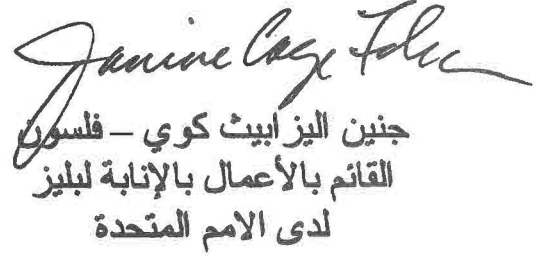 Janine Coye Felson
جنين اليزابيث كوي – فلسون
القائم بالأعمال بالإنابة لبليز
لدى الامم المتحدة